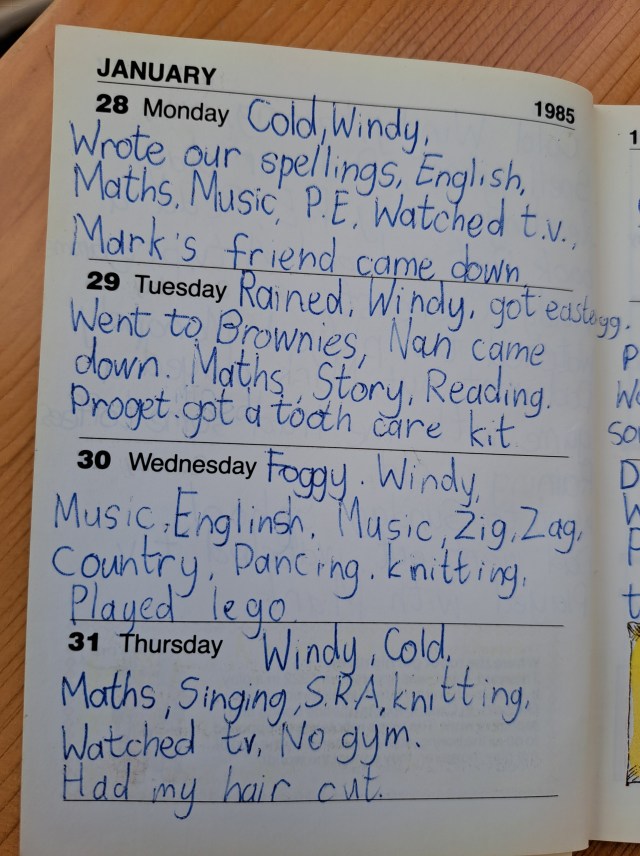 JANUARY
1985
28 Monday Cold, Windy,
Wrote our spellings, English,
Maths, Music, P.E, Watched t.v.,
Mark's friend came down,
29 Tuesday Rained, Windy, got easteregg.
Went to Brownies, Nan came
down. Maths, Story, Reading.
Proget. got a tooth care kit
30 Wednesday Foggy. Windy,
Music, Englinsh, Music, Zig, Zag,
Country, Dancing. knitting,
Played lego
31 Thursday Windy, Cold.
Maths, Singing, S.R.A, knitting,
Watched tv, No gym.
Had my hair cut.